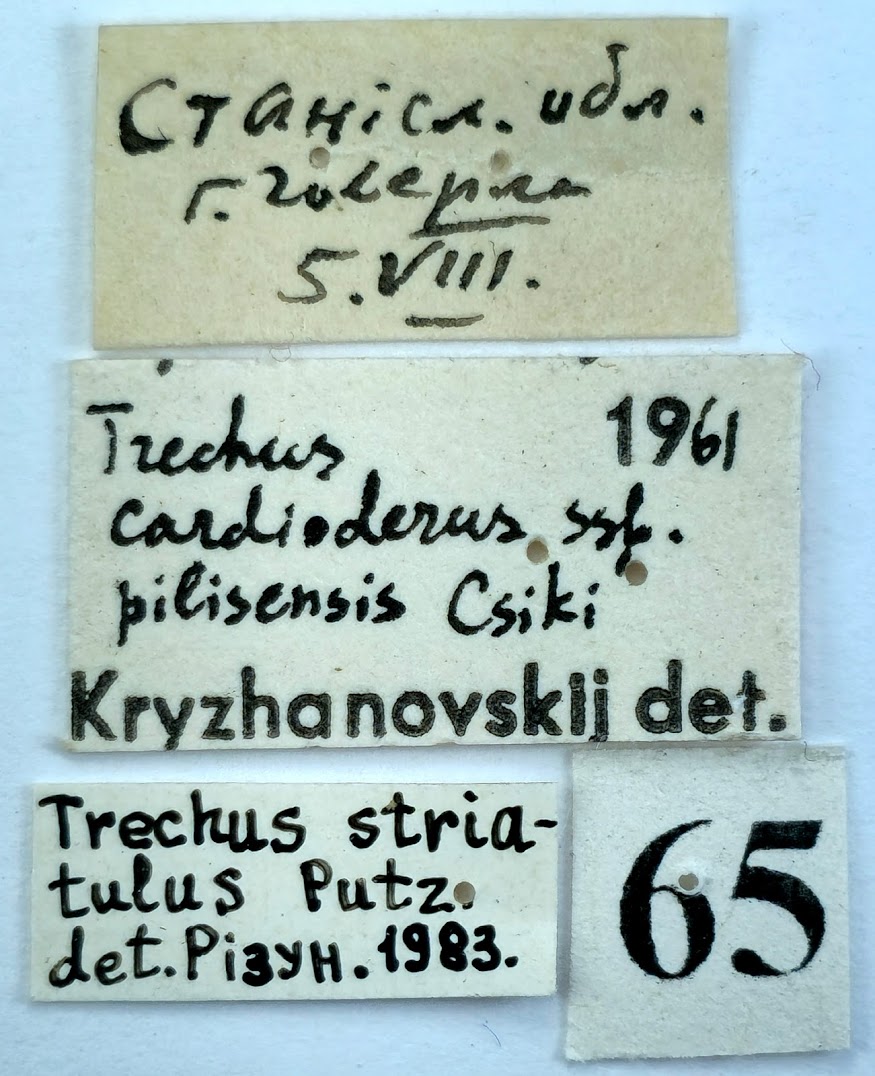 Станісл. обл.
г. Говерла
5.VIII.
Trechus 1961
cardioderus ssp.
pilisensis Csiki
Kryzhanovskij det.
Trechus stria-
tulus Putz.
det. Різун. 1983.
65